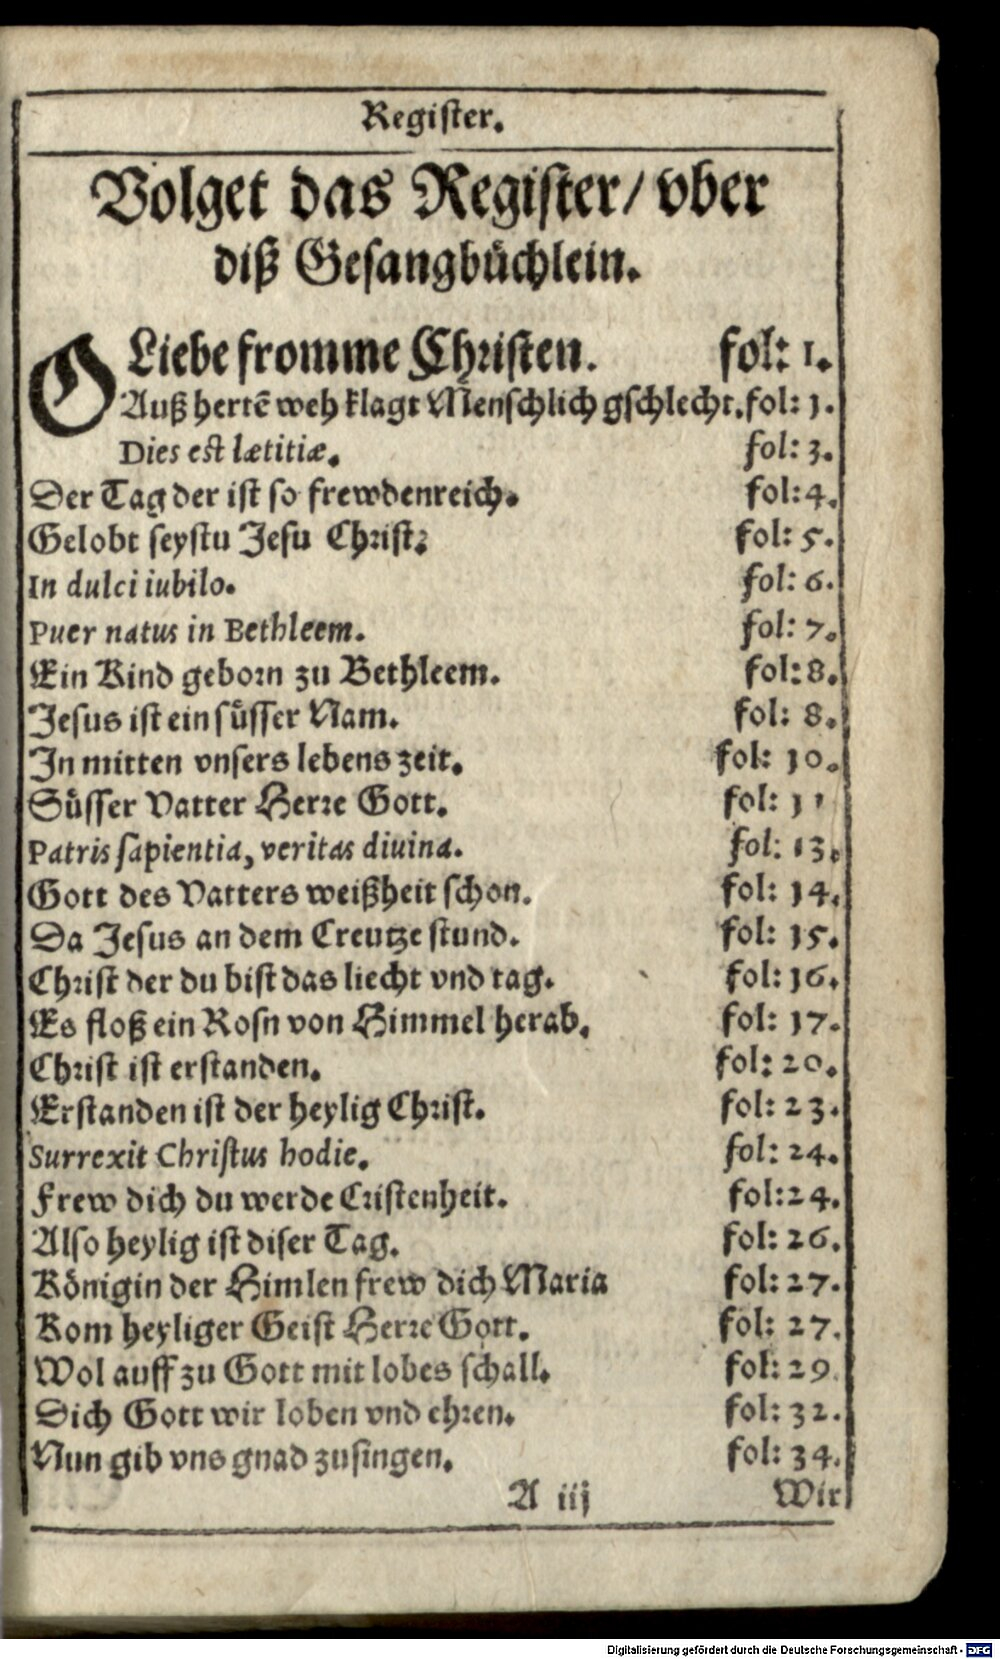 Register.
Volget das Register/ vber
diß Gesangbüchlein.
O Liebe fromme Christen. fol: 1.
Auß hertē weh klagt Menschlich gschlecht. fol: 1.
Dies est lætitiæ. fol: 3.
Der Tag der ist so frewdenreich. fol: 4.
Gelobt seystu Jesu Christ: fol: 5.
In dulci iubilo. fol: 6.
Puer natus in Bethleem. fol: 7.
Ein Kind geborn zu Bethleem. fol: 8.
Jesus ist ein süsser Nam. fol: 8.
In mitten vnsers lebens zeit. fol: 10.
Süsser Vatter Herre Gott. fol: 11
Patris sapientia, veritas diuina. fol: 13.
Gott des Vatters weißheit schon. fol: 14.
Da Jesus an dem Creutze stund. fol: 15.
Christ der du bist das liecht vnd tag. fol: 16.
Es floß ein Rosn von Himmel herab. fol: 17.
Christ ist erstanden. fol: 20.
Erstanden ist der heylig Christ. fol: 23.
Surrexit Christus hodie. fol: 24.
Frew dich du werde Cristenheit. fol: 24.
Also heylig ist diser Tag. fol: 26.
Königin der Himlen frew dich Maria fol: 27.
Kom heyliger Geist Herre Gott. fol: 27.
Wol auff zu Gott mit lobes schall. fol: 29.
Dich Gott wir loben vnd ehren. fol: 32.
Nun gib vns gnad zusingen. fol: 34.
A iij Wir
Digitalisierung gefördert durch die Deutsche Forschungsgemeinschaft - DFG